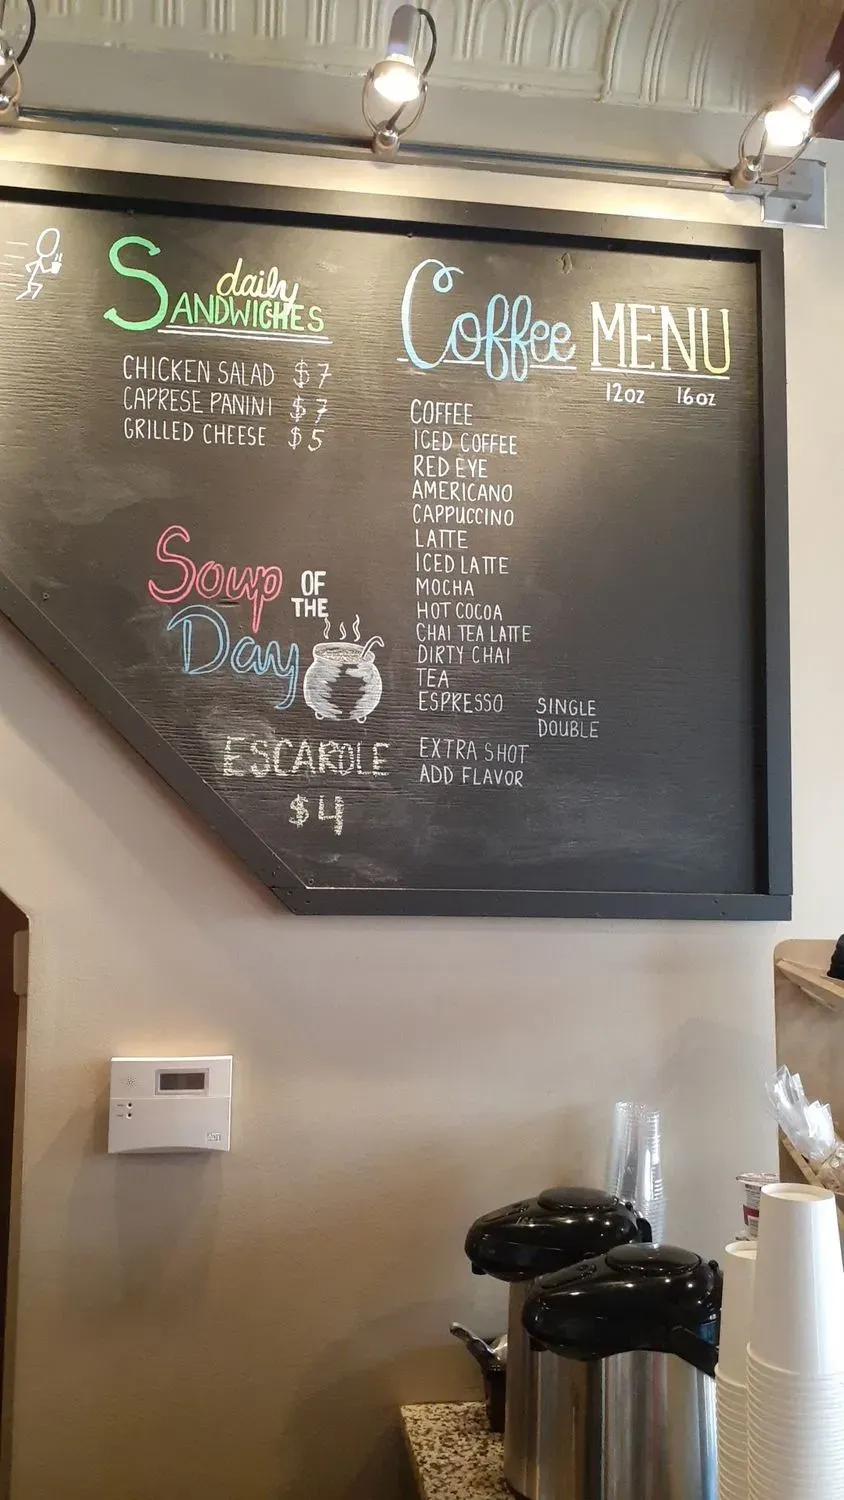 daily
SANDWICHES
CHICKEN SALAD $7
CAPRESE PANINI $7
GRILLED CHEESE $5
Soup OF THE
Day
ESCAROLE
$4
Coffee MENU
12oz 16oz
COFFEE
ICED COFFEE
RED EYE
AMERICANO
CAPPUCCINO
LATTE
ICED LATTE
MOCHA
HOT COCOA
CHAI TEA LATTE
DIRTY CHAI
TEA
ESPRESSO SINGLE
DOUBLE
EXTRA SHOT
ADD FLAVOR
ADT